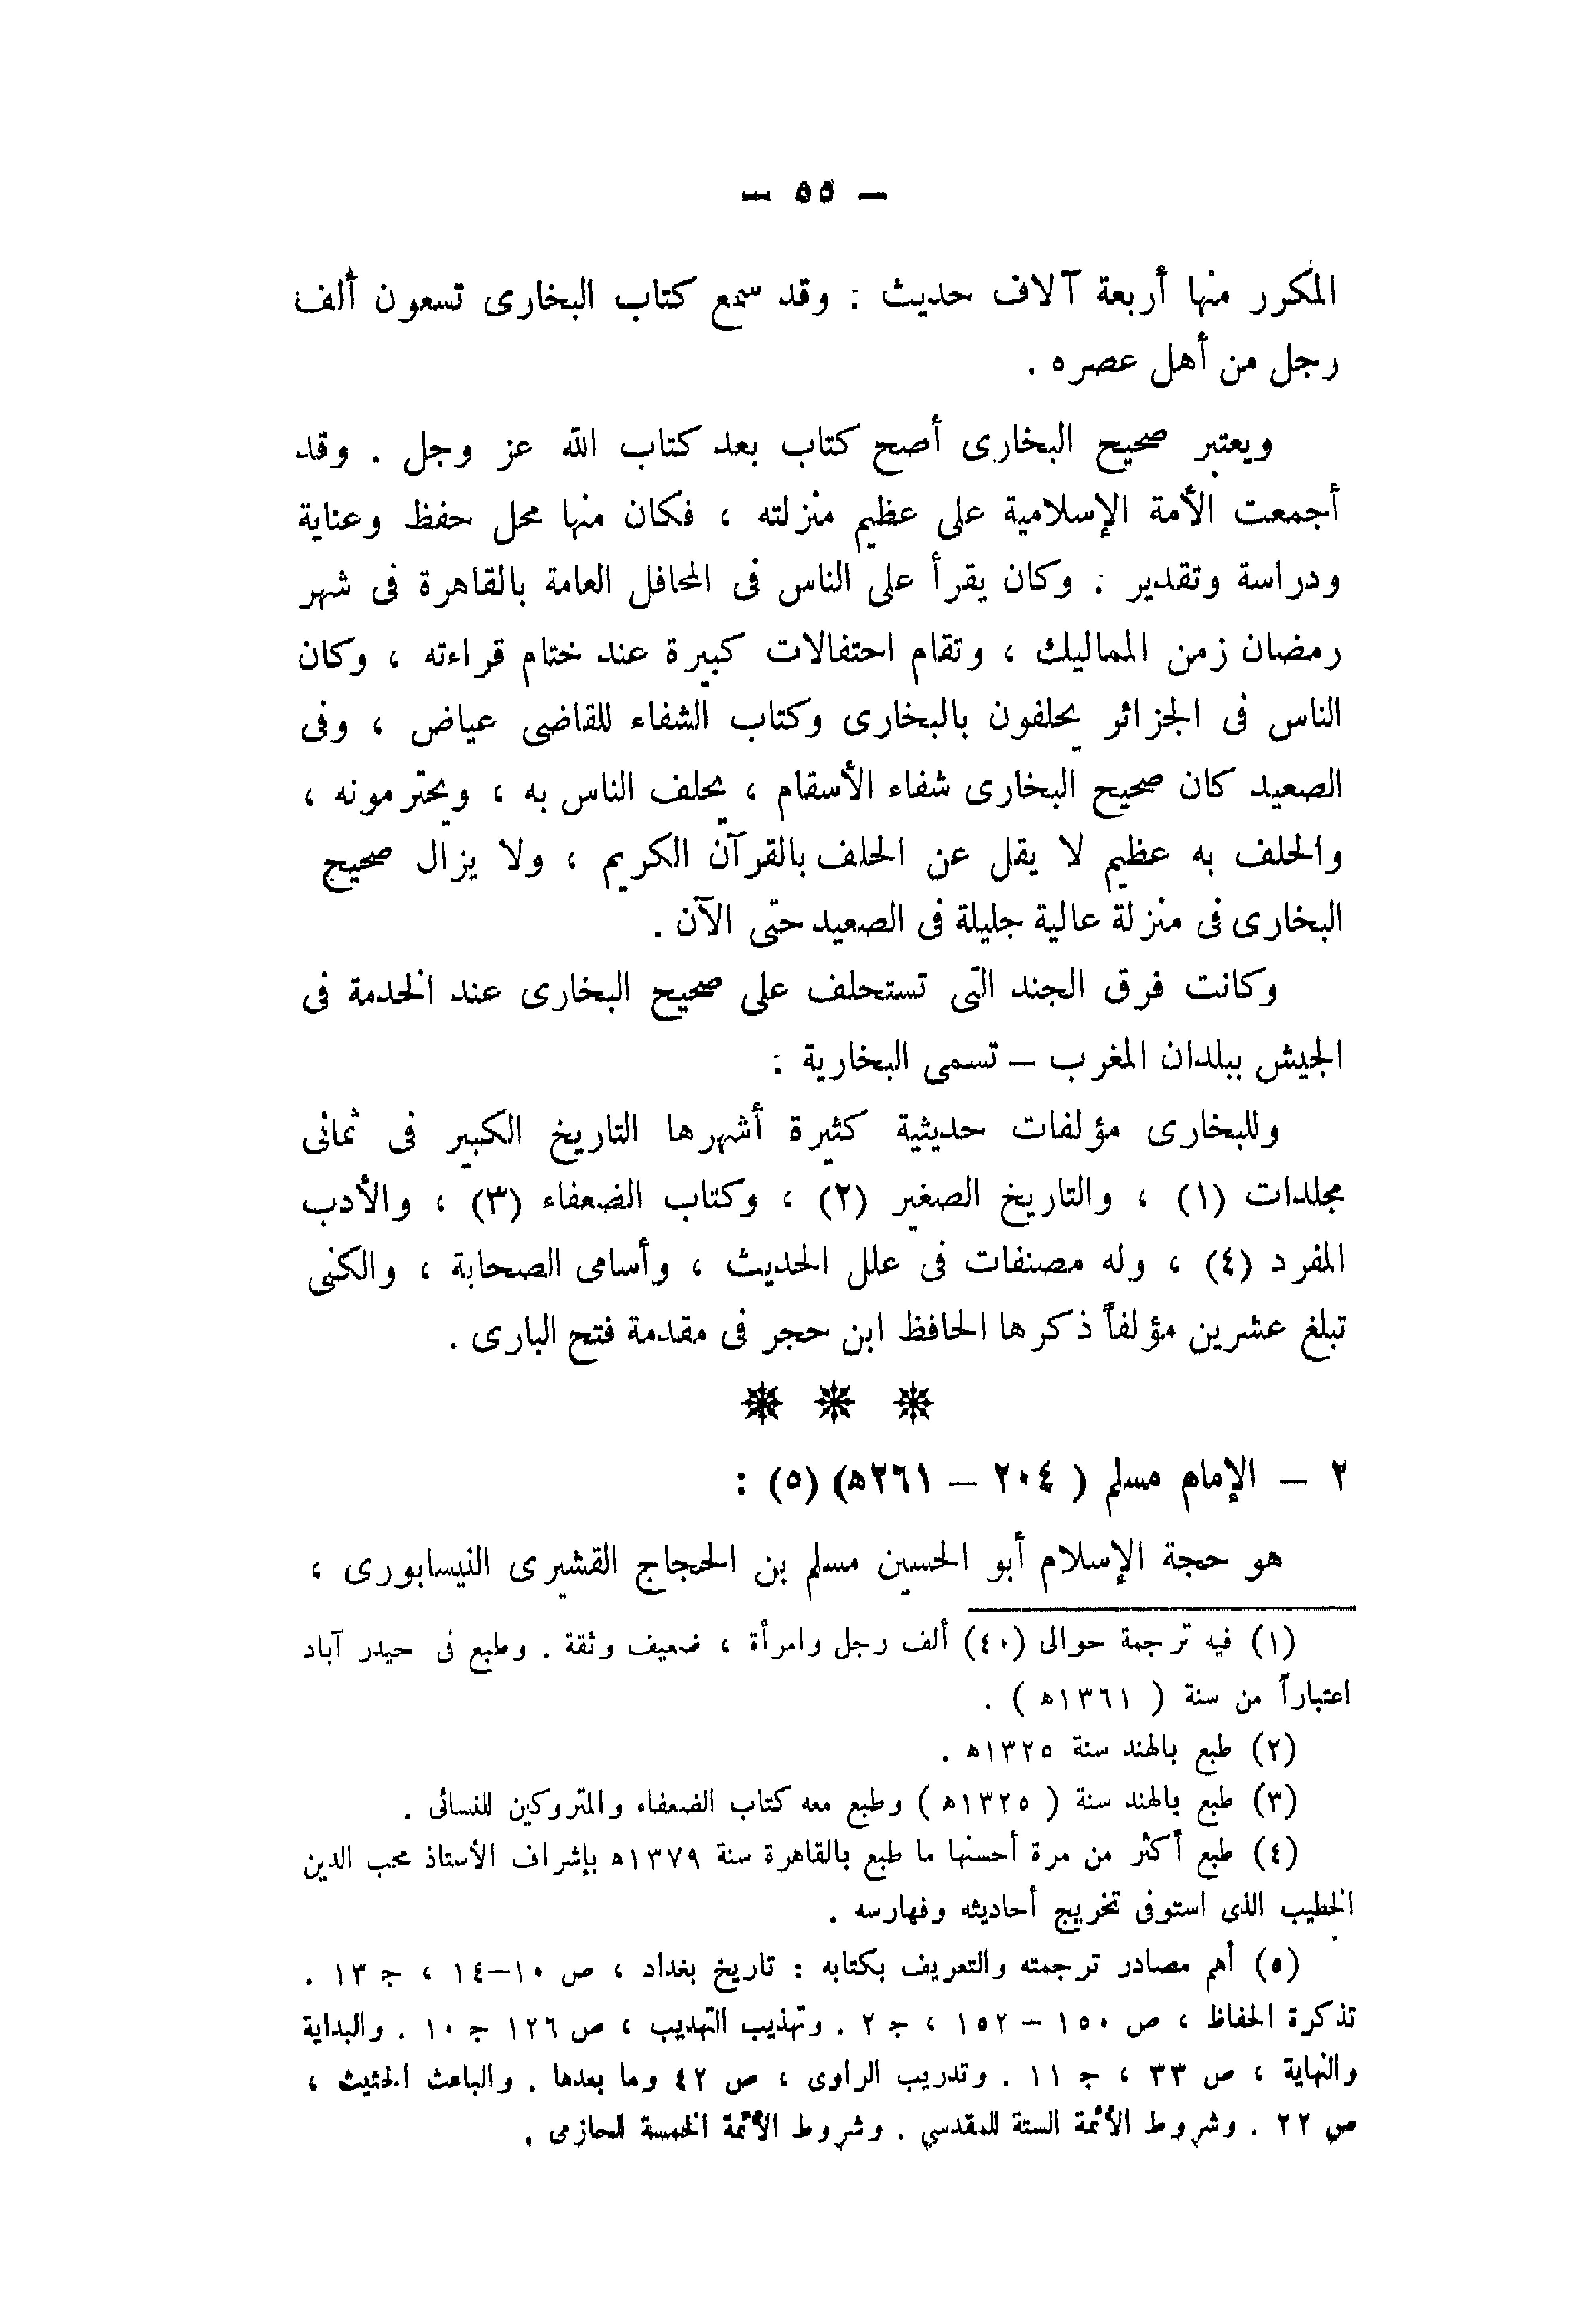 — ٥٥ —
المكرر منها أربعة آلاف حديث : وقد سمع كتاب البخارى تسعون ألف
رجل من أهل عصره .
ويعتبر صحيح البخارى أصح كتاب بعد كتاب الله عز وجل . وقد
أجمعت الأمة الإسلامية على عظيم منزلته ، فكان منها محل حفظ وعناية
ودراسة وتقدير : وكان يقرأ على الناس فى المحافل العامة بالقاهرة فى شهر
رمضان زمن المماليك ، وتقام احتفالات كبيرة عند ختام قراءته ، وكان
الناس فى الجزائر يحلفون بالبخارى وكتاب الشفاء للقاضى عياض ، وفى
الصعيد كان صحيح البخارى شفاء الأسقام ، يحلف الناس به ، ويحترمونه ،
والحلف به عظيم لا يقل عن الحلف بالقرآن الكريم ، ولا يزال صحيح
البخارى فى منزلة عالية جليلة فى الصعيد حتى الآن .
وكانت فرق الجند التى تستحلف على صحيح البخارى عند الخدمة فى
الجيش ببلدان المغرب — تسمى البخارية :
وللبخارى مؤلفات حديثية كثيرة أشهرها التاريخ الكبير فى ثمانى
مجلدات (١) ، والتاريخ الصغير (٢) ، وكتاب الضعفاء (٣) ، والأدب
المفرد (٤) ، وله مصنفات فى علل الحديث ، وأسامى الصحابة ، والكنى
تبلغ عشرين مؤلفاً ذكرها الحافظ ابن حجر فى مقدمة فتح البارى .
* * *
٢ — الإمام مسلم ( ٢٠٤ — ٢٦١ه‍) (٥) :
هو حجة الإسلام أبو الحسين مسلم بن الحجاج القشيرى النيسابورى ،
(١) فيه ترجمة حوالى (٤٠) ألف رجل وامرأة ، ضعيف وثقة . وطبع فى حيدر آباد
اعتباراً من سنة ( ١٣٦١ه‍ ) .
(٢) طبع بالهند سنة ١٣٢٥ه‍ .
(٣) طبع بالهند سنة ( ١٣٢٥ه‍ ) وطبع معه كتاب الضعفاء والمتروكين للنسائى .
(٤) طبع أكثر من مرة أحسنها ما طبع بالقاهرة سنة ١٣٧٩ه‍ بإشراف الأستاذ محب الدين
الخطيب الذى استوفى تخريج أحاديثه وفهارسه .
(٥) أهم مصادر ترجمته والتعريف بكتابه : تاريخ بغداد ، ص ١٠—١٤ ، ج ١٣ .
تذكرة الحفاظ ، ص ١٥٠ — ١٥٢ ، ج ٢ . وتهذيب التهديب ، ص ١٢٦ ج ١٠ . والبداية
والنهاية ، ص ٣٣ ، ج ١١ . وتدريب الراوى ، ص ٤٢ وما بعدها . والباعث الحثيث ،
ص ٢٢ . وشروط الأئمة الستة للمقدسي . وشروط الأئمة الخمسة للحازمى .